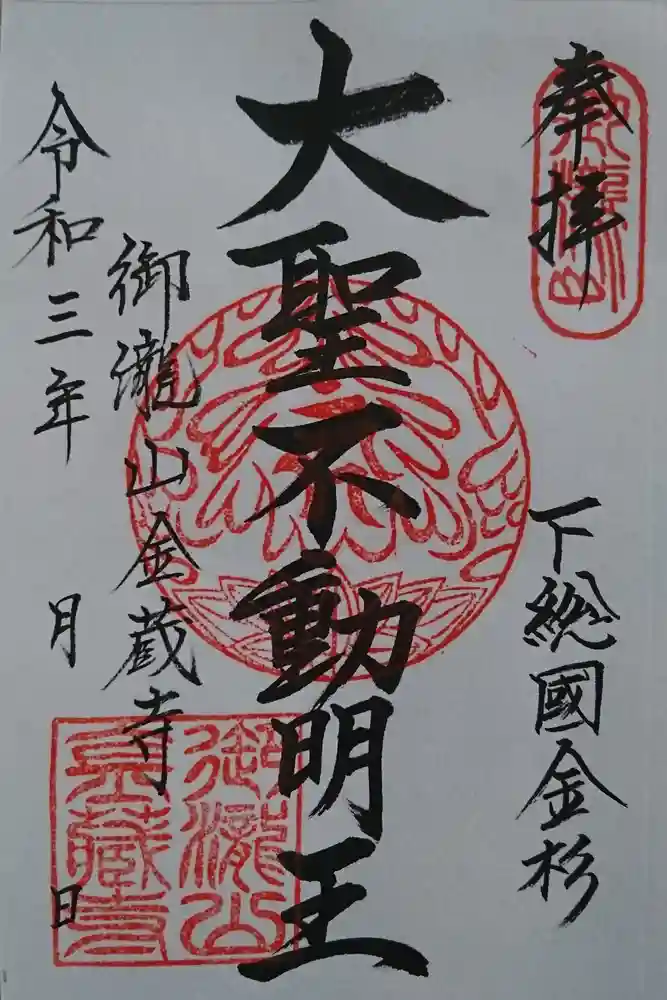 奉拝
下総國金杉
大聖不動明王
御瀧山金蔵寺
令和三年 月 日
御瀧山
御瀧山
金藏寺